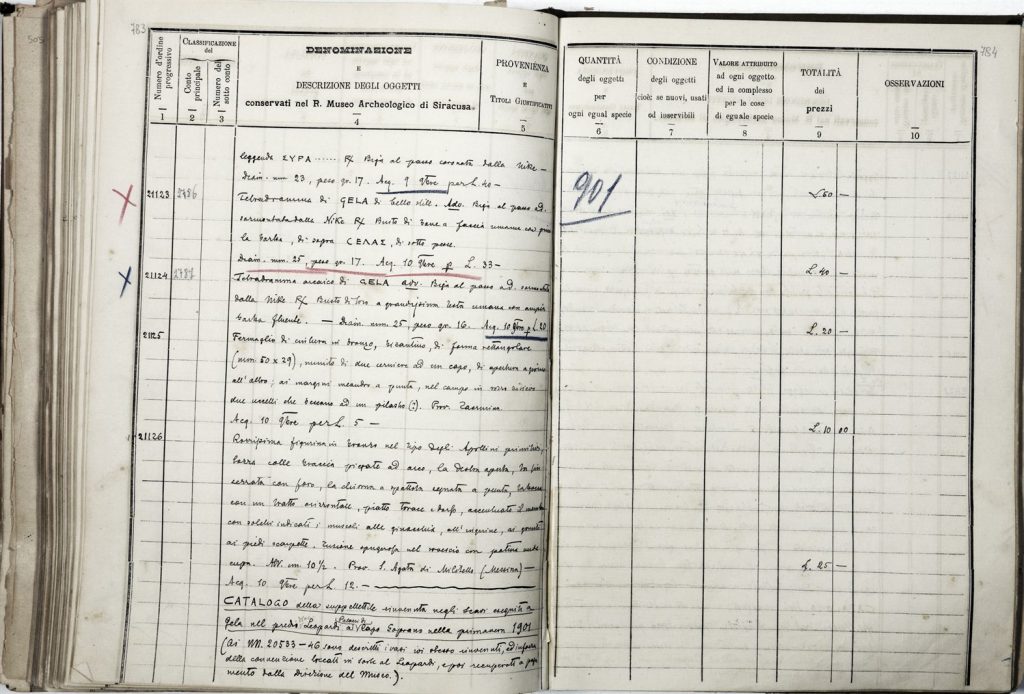 505
783
Numero d'ordine progressivo
CLASSIFICAZIONE del
Conto principale
Numero del sotto conto
DENOMINAZIONE
E
DESCRIZIONE DEGLI OGGETTI
conservati nel R. Museo Archeologico di Siracusa
PROVENIENZA
E
TITOLI GIUSTIFICATIVI
1 2 3 4 5
leggenda ΣΥΡΑ ....... R/ Biga al passo coronata dalla Nike —
Diam. mm 23, peso gr. 17. Acq. 9 9bre per L. 40 —
21123 2786 Tetradramma di GELA di bello stile. Adv. Biga al passo a d.
sormontata dalla Nike R/ Busto di toro a faccia umana con
la barba, di sopra CΕΛΑΣ, di sotto pesce.
Diam. mm. 25, peso gr. 17. Acq. 10 9bre p L. 33 —
21124 2787 Tetradramma arcaico di GELA adv. Biga al passo a d.
dalla Nike R/ Busto di toro a grandissima testa umana con ampia
barba fluente. — Diam. mm. 25, peso gr. 16. Acq. 10 9bre p L. 20
21125 Fermaglio di cintura in bronzo, bizantino, di forma rettangolare
(mm. 50 x 29), munito di due cerniere ad un capo, di apertura a
all'altro; ai margini meandro a punta, nel campo in rozzo
due uccelli che beccano ad un pilastro (?). Prov. Taormina.
Acq. 10 9bre per L. 5 —
21126 Rozzissima figurina in bronzo nel tipo degli Apollini primitivi,
colle braccia piegate ad arco, la destra aperta, la
serrata con foro, la chioma a spatola segnata a punta, la
con un tratto orizzontale, piatto torace e dorso, accentuato il membro
con solchi indicati i muscoli alle ginocchia, all'inguine, ai
ai piedi scarpette. Fusione spugnosa nel rovescio con patina
cupa. Alt. cm. 10½. Prov. S. Agata di Militello (Messina) —
Acq. 10 9bre per L. 12. —
CATALOGO della suppellettile rinvenuta negli scavi eseguiti a
Gela nel predio Leopardi a Capo Soprano nella primavera 1901
(Ai NN. 20533 – 46 sono descritti i vasi ivi stesso rinvenuti, ed in
della convenzione toccati in sorte al Leopardi, e poi recuperati a
mento dalla Direzione del Museo.).
784
QUANTITÀ
degli oggetti
per
ogni egual specie
CONDIZIONE
degli oggetti
cioè: se nuovi, usati
od inservibili
VALORE ATTRIBUITO
ad ogni oggetto
ed in complesso
per le cose
di eguale specie
TOTALITÀ
dei
prezzi
OSSERVAZIONI
6 7 8 9 10
901
L. 60 —
L. 40 —
L. 20 —
L. 10 00
L. 25 —